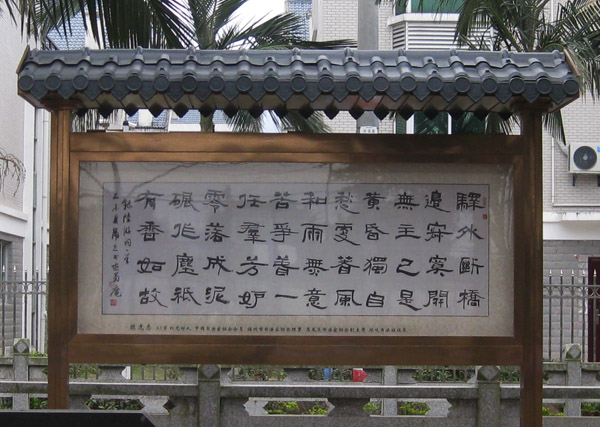 驛外斷橋
邊寂寞開
無主已是
黃昏獨自
愁更着風
和雨無意
苦爭春一
任羣芳妒
零落成泥
碾作塵祇
有香如故